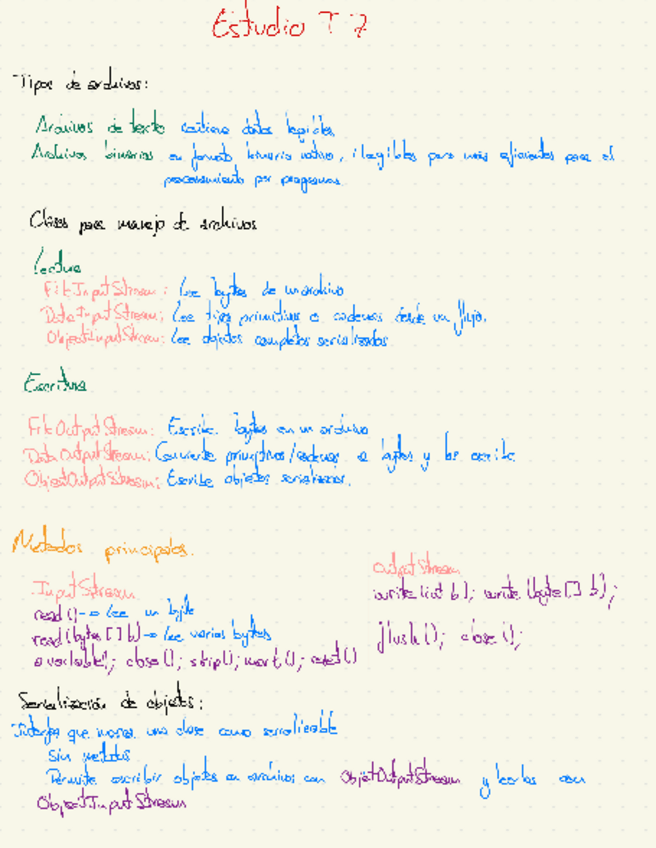 Estudio T7
Tipos de archivos:
Archivos de texto contiene datos legibles
Archivos binarios en formato binario nativo, ilegibles pero más eficientes para el
procesamiento por programas.
Clases para manejo de archivos
Lectura
FileInputStream: Lee bytes de un archivo
DataInputStream: Lee tipos primitivos o cadenas desde un flujo.
ObjectInputStream: Lee objetos completos serializados
Escritura
FileOutputStream: Escribe bytes en un archivo
DataOutputStream: Convierte primitivos/cadenas a bytes y los escribe
ObjectOutputStream: Escribe objetos serializados.
Metodos principales.
InputStream
read() -> Lee un byte
read(bytes[] b) -> Lee varios bytes
available(); close(); skip(); mark(); reset()
OutputStream
write(int b); write(byte[] b);
flush(); close();
Serialización de objetos:
Interfaz que marca una clase como serializable
Sin metodos
Permite escribir objetos en archivos con ObjectOutputStream y leerlos con
ObjectInputStream